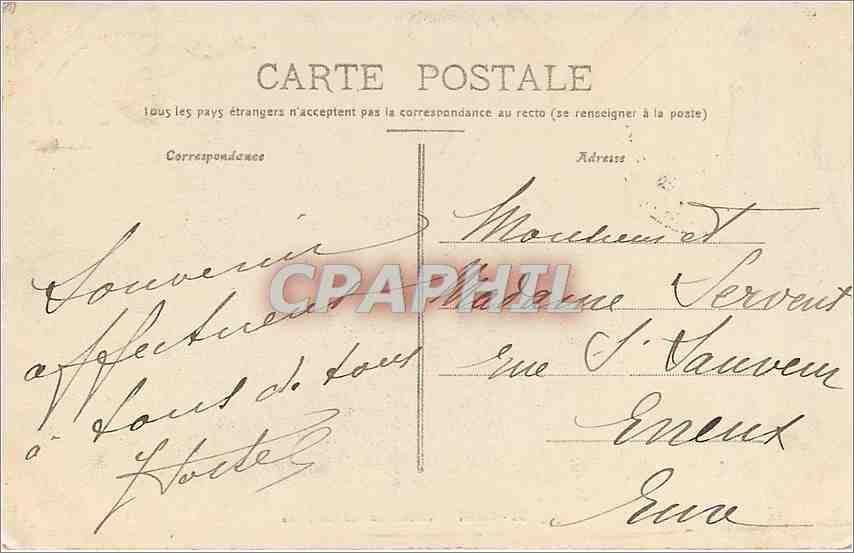 CARTE POSTALE
Tous les pays étrangers n'acceptent pas la correspondance au recto (se renseigner à la poste)
Correspondance
Adresse
Souvenir
affectueux
à tous de tous
Monsieur et
Madame Servent
rue St Sauveur
Eure
CPAPHIL